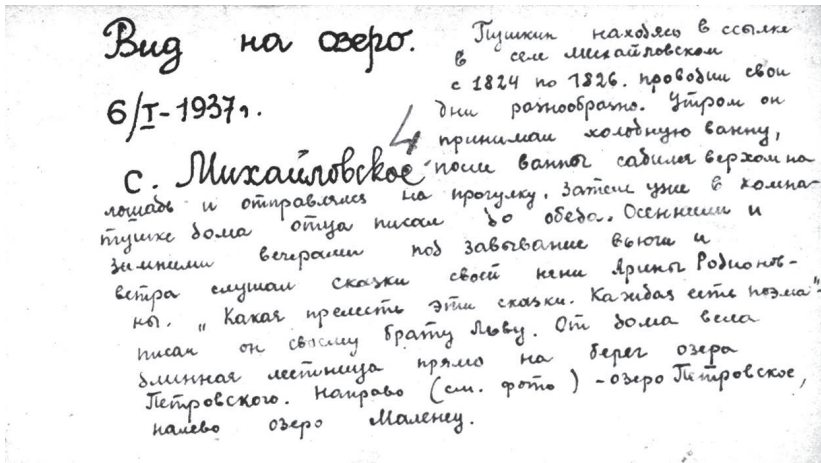 Вид на озеро.
6/I-1937г.
4
с. Михайловское
Пушкин находясь в ссылке
в селе Михайловском
с 1824 по 1826. проводил свои
дни разнообразно. Утром он
принимал холодную ванну,
после ванны садился верхом на
лошадь и отправлялся на прогулку. Затем уже в комна-
тушке дома отца писал до обеда. Осенними и
зимними вечерами под завывание вьюги и
ветра слушал сказки своей няни Арины Родионов-
ны. „Какая прелесть эти сказки. Каждая есть поэма"-
писал он своему брату Льву. От дома вела
длинная лестница прямо на берег озера
Петровского. Направо (см. фото) - озеро Петровское,
налево озеро Маленец.